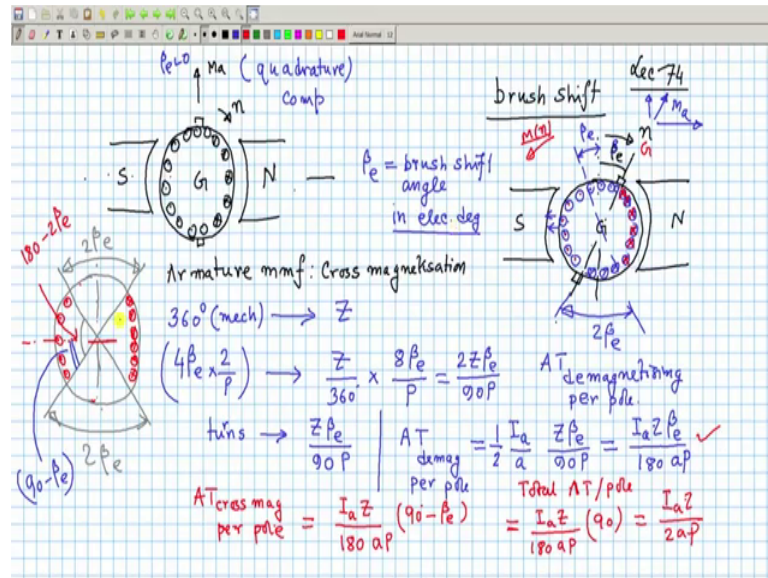 Arial Normal 12
Lec-74
brush shift
βe=0 Ma (quadrature)
comp
n
S G N
βe = brush shift
angle
in elec. deg
M(n)
βe
βe
n
G
Ma
S G N
2βe
180-2βe
2βe
2βe
(90-βe)
Armature mmf: Cross magnetisation
360° (mech) → Z
(4βe × 2/P) → Z/360 × 8βe/P = 2Zβe/90P
AT demagnetizing
per pole.
turns → Zβe/90P
AT demag per pole = 1/2 Ia/a Zβe/90P = IaZβe/180 aP ✓
AT cross mag per pole = IaZ/180 aP (90-βe)
Total AT/pole
= IaZ/180 aP (90) = IaZ/2aP